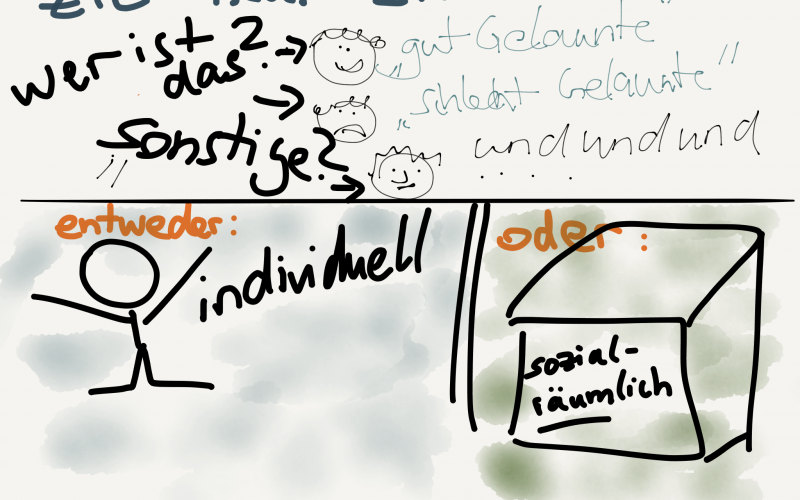 wer ist
das?
→ "gut Gelaunte"
→ "schlecht Gelaunte"
"sonstige? → und und und
. . . .
entweder:
individuell
oder:
sozial-
räumlich